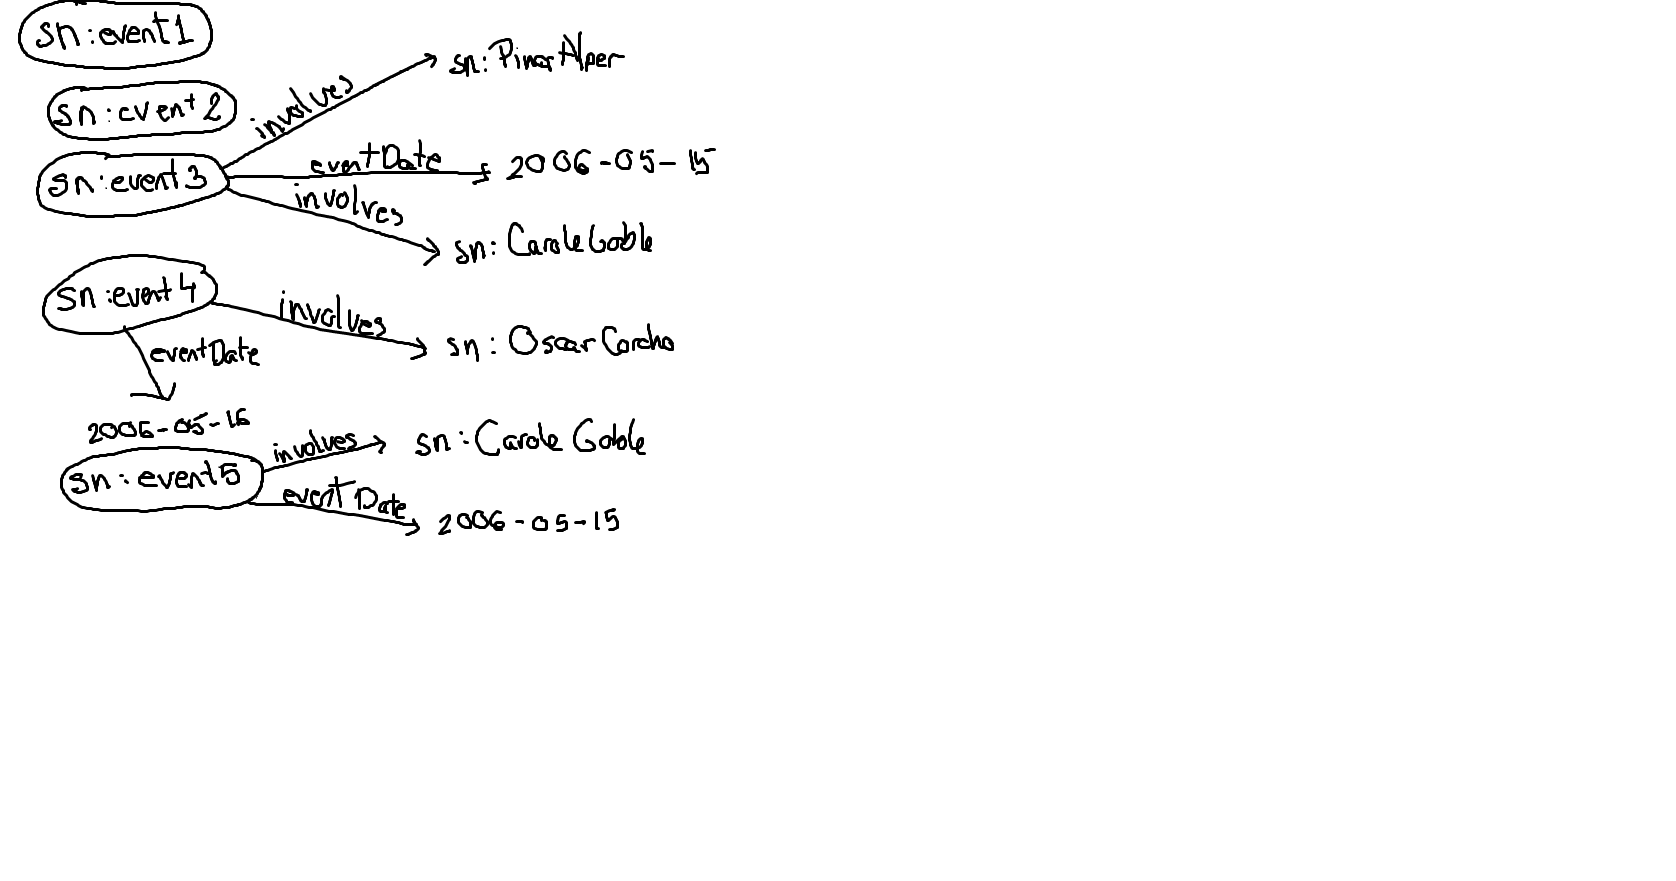 sn:event1
sn:PinarAlper
sn:event2
involves
sn:event3
eventDate
2006-05-15
involves
sn:CaroleGoble
sn:event4
involves
sn:OscarCorcho
eventDate
2006-05-16
involves
sn:Carole Goble
sn:event5
eventDate
2006-05-15